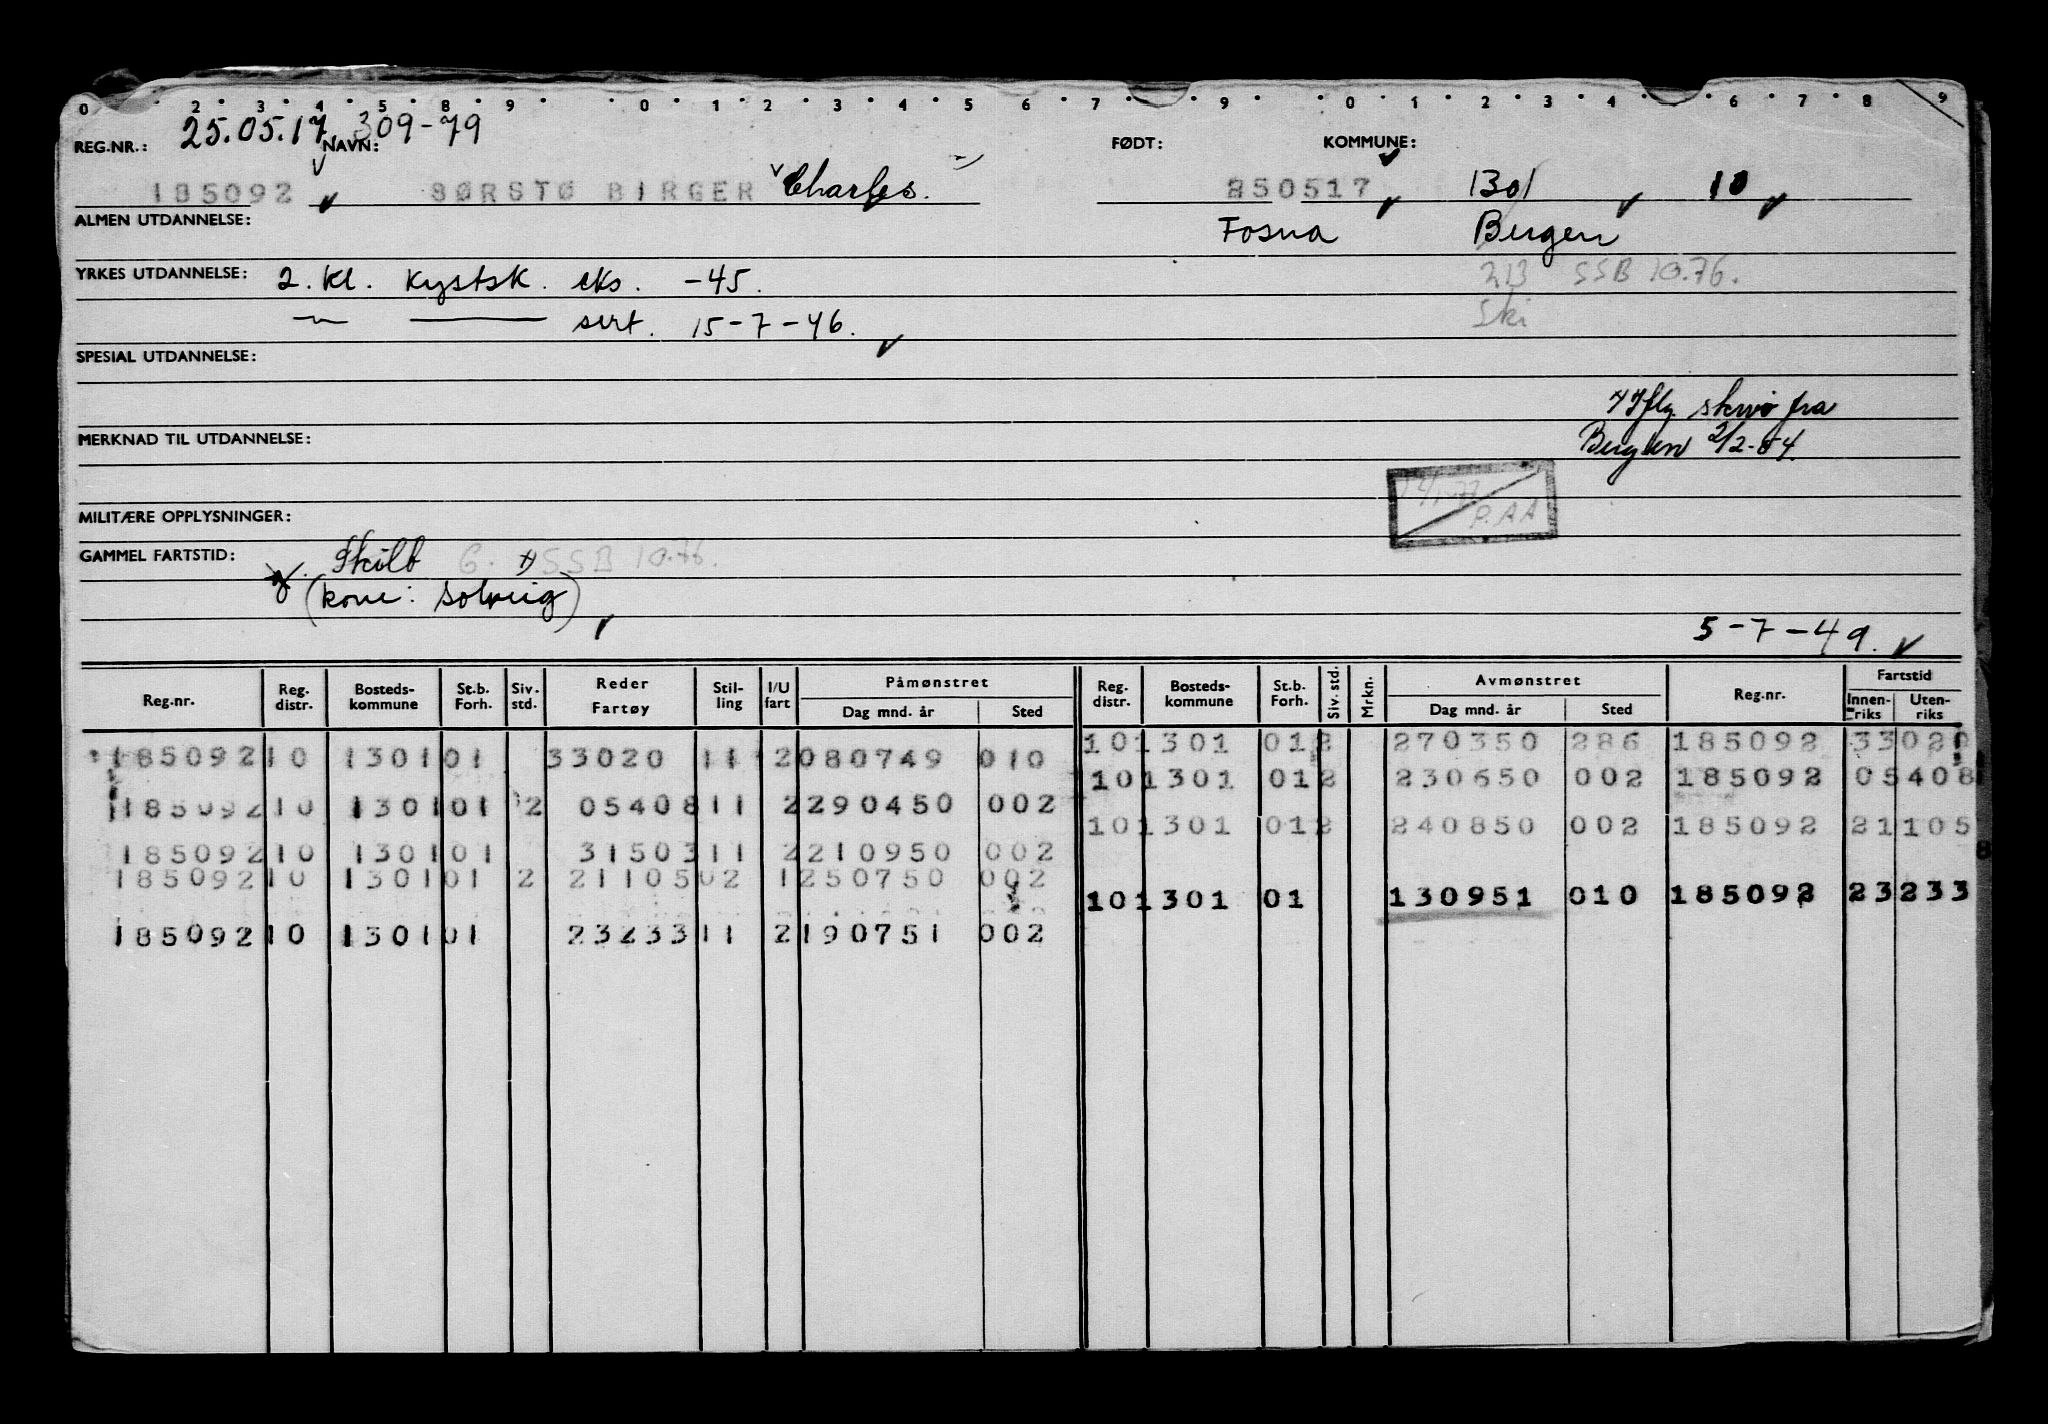 0 2 3 4 5 8 9 0 1 2 3 4 5 6 7 9 0 1 2 3 4 6 7 8 9
REG.NR.: 25.05.17 NAVN: 309-79 FØDT: KOMMUNE:
185092 SØRSTØ BIRGER Charles. 250517 1301 10
ALMEN UTDANNELSE: Fosna Bergen
YRKES UTDANNELSE: 2. kl. kystsk. eks. -45. 213 SSB 10.76.
sert. 15-7-46. Ski
SPESIAL UTDANNELSE:
fra
MERKNAD TIL UTDANNELSE: Bergen 2/2-54.
P.AA
MILITÆRE OPPLYSNINGER:
GAMMEL FARTSTID: G. SSB 10.76.
(kone: Solveig)
5-7-49.
Reg.nr. Reg. distr. Bosteds-kommune St.b. Forh. Siv. std. Reder Fartøy Stil-ling I/U fart Påmønstret Dag mnd. år Sted Reg. distr. Bosteds-kommune St.b. Forh. Siv. std. Mrkn. Avmønstret Dag mnd. år Sted Reg.nr. Fartstid Innen-riks Uten-riks
185092 10 1301 01 33020 11 2 080749 010 10 1301 01 2 270350 286 185092 33020
10 1301 01 2 230650 002 185092 05408
185092 10 1301 01 2 05408 11 2 290450 002
10 1301 01 2 240850 002 185092 21105
185092 10 1301 01 31503 11 2 210950 002
185092 10 1301 01 2 21105 02 1 250750 002
10 1301 01 130951 010 185092 23233
185092 10 1301 01 23233 11 2 190751 002